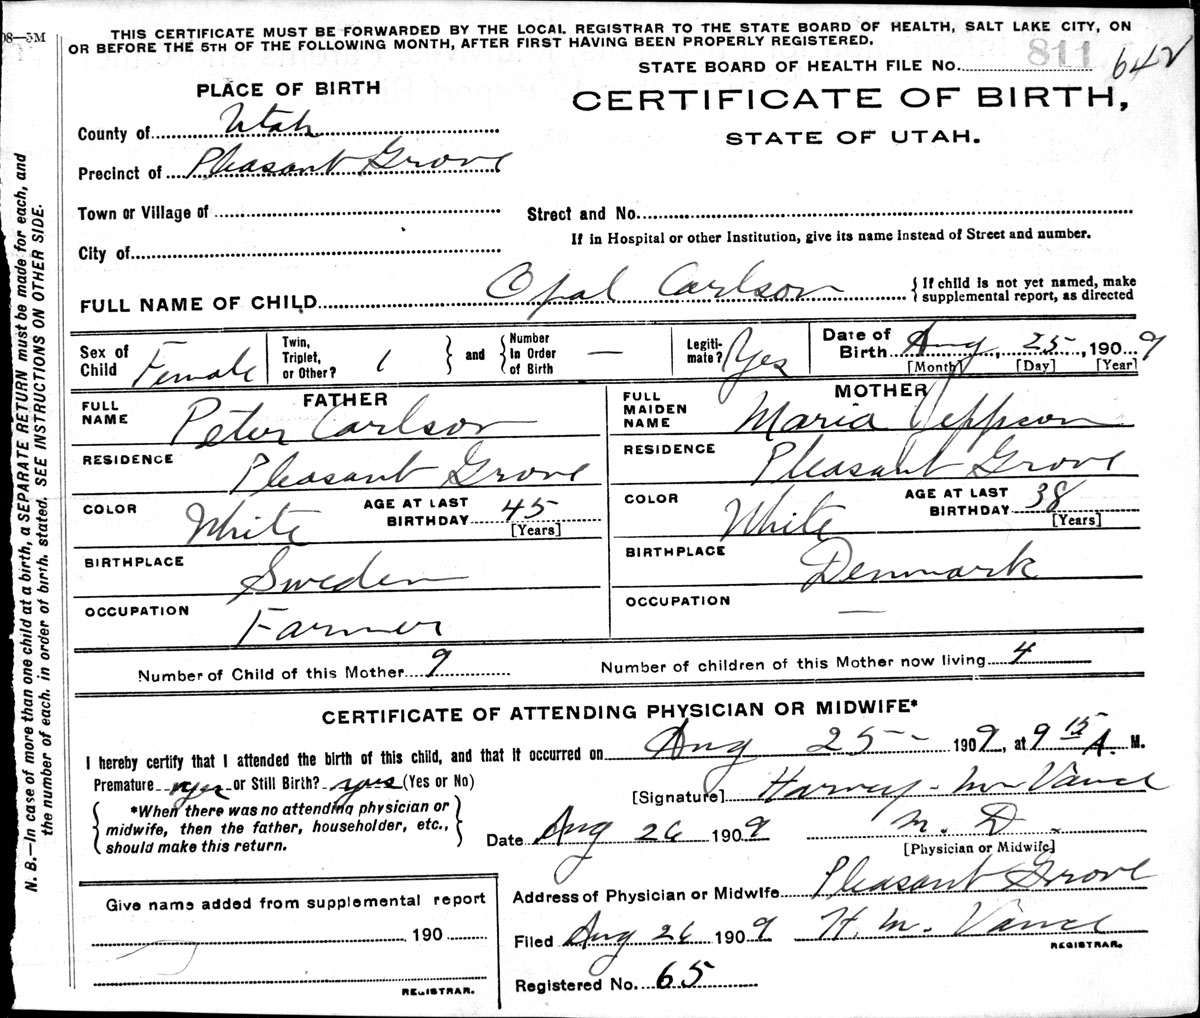 08—5M
THIS CERTIFICATE MUST BE FORWARDED BY THE LOCAL REGISTRAR TO THE STATE BOARD OF HEALTH, SALT LAKE CITY, ON
OR BEFORE THE 5TH OF THE FOLLOWING MONTH, AFTER FIRST HAVING BEEN PROPERLY REGISTERED.
STATE BOARD OF HEALTH FILE No. 811 642
PLACE OF BIRTH
CERTIFICATE OF BIRTH,
STATE OF UTAH.
County of Utah
Precinct of Pleasant Grove
Town or Village of
Street and No.
If in Hospital or other Institution, give its name instead of Street and number.
City of
FULL NAME OF CHILD Opal Carlson { If child is not yet named, make
supplemental report, as directed
Sex of Child Female Twin, Triplet, or Other? 1 } and { Number In Order of Birth — Legiti-mate? Yes Date of Birth Aug, 25, 1909
[Month] [Day] [Year]
FATHER
FULL NAME Peter Carlson
RESIDENCE Pleasant Grove
COLOR White AGE AT LAST BIRTHDAY 45 [Years]
BIRTHPLACE Sweden
OCCUPATION Farmer
MOTHER
FULL MAIDEN NAME Maria Jeppson
RESIDENCE Pleasant Grove
COLOR White AGE AT LAST BIRTHDAY 38 [Years]
BIRTHPLACE Denmark
OCCUPATION —
Number of Child of this Mother 9 Number of children of this Mother now living 4
CERTIFICATE OF ATTENDING PHYSICIAN OR MIDWIFE*
I hereby certify that I attended the birth of this child, and that it occurred on Aug 25— 1909, at 9 15 A. M.
Premature yes or Still Birth? yes (Yes or No)
[Signature] Harvey M Vance
{ *When there was no attending physician or
midwife, then the father, householder, etc.,
should make this return. }
Date Aug 26 1909 M. D.
[Physician or Midwife]
Address of Physician or Midwife Pleasant Grove
Filed Aug 26 1909 H. M. Vance
REGISTRAR.
Registered No. 65
Give name added from supplemental report
190
REGISTRAR.
N. B.—In case of more than one child at a birth, a SEPARATE RETURN must be made for each, and
the number of each. in order of birth. stated. SEE INSTRUCTIONS ON OTHER SIDE.